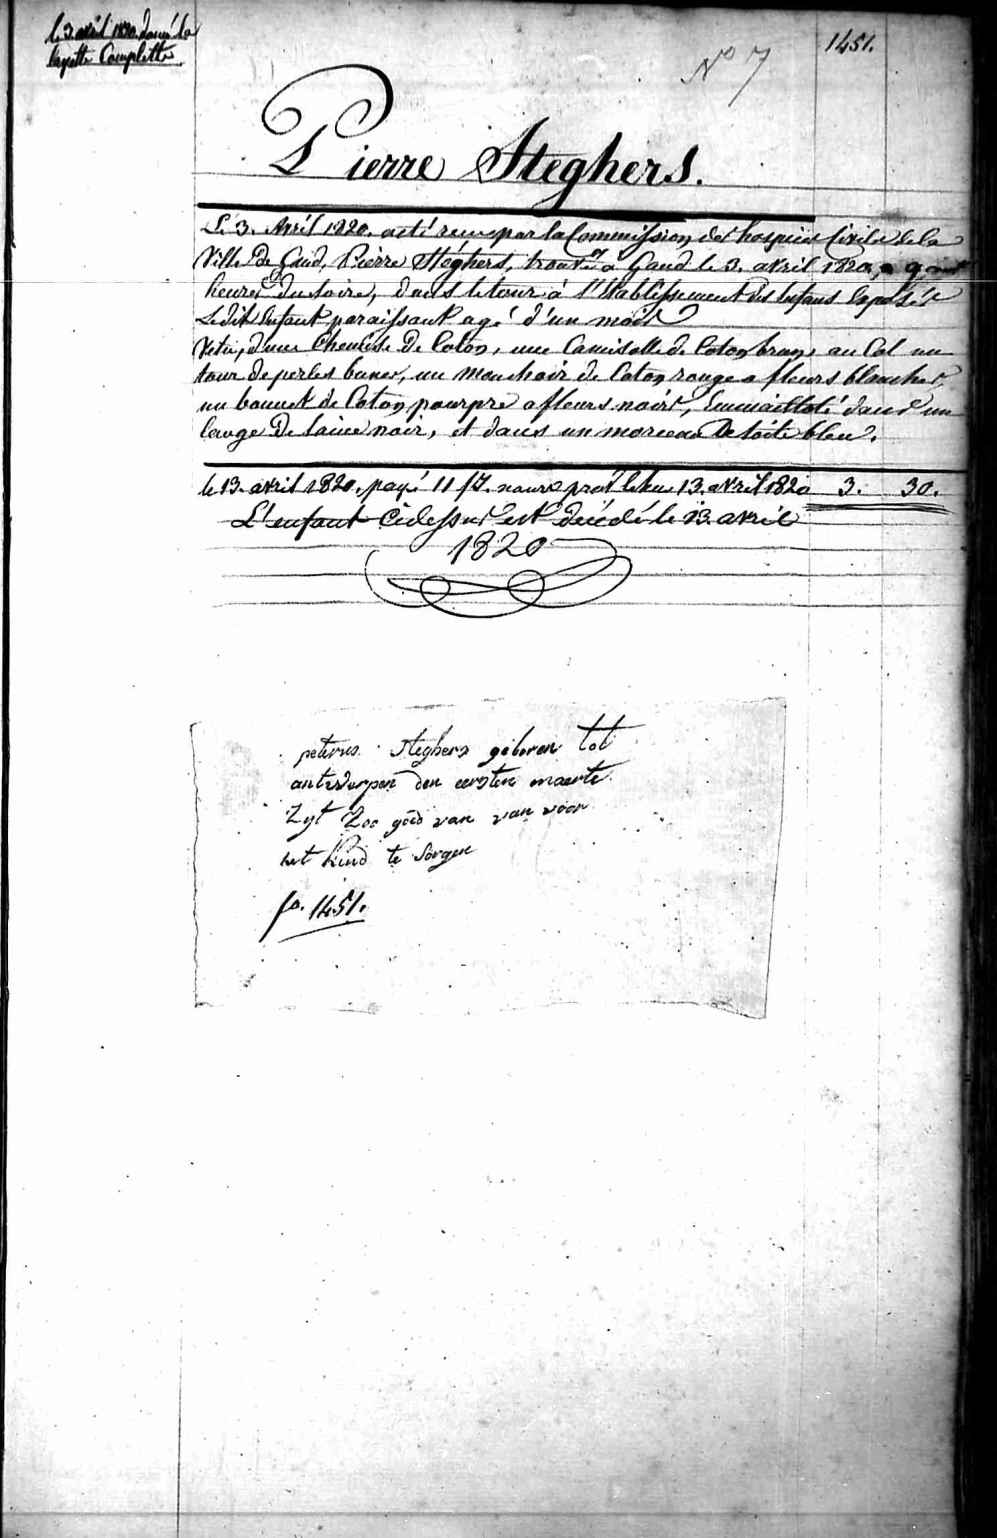 le 3 avril 1820. donné la
layette Complette
1451.
N° 7
Pierre Steghers.
Le 3. Avril 1820. a été recu par la Commission des hospices Civils de la
Ville de Gand, Pierre Steghers, trouvé a Gand le 3. avril 1820, a 9
heures du soire, dans le tour à l'Etablissement des Enfans Exposés
Ledit Enfant paraissant agé d'un mois
Vetu, d'une Chemise De Coton, une Camisolle de Coton brun, au Col un
tour de perles, un mouchoir de Coton rouge a fleurs blanches,
un bonnet de Coton pourpre a fleurs noirs, Emmailloté dans un
lange De Laine noir, et dans un morceau De toile bleu.
le 13. avril 1820. payé 11 13. avril 1820 3. 30.
L'enfant Cidessus est décédé le 13. avril
1820
peterus Steghers geboren tot
antwerpen den eersten maerte
Zyt Zoo goed van van voor
het kind te Sorgen
fo. 1451.